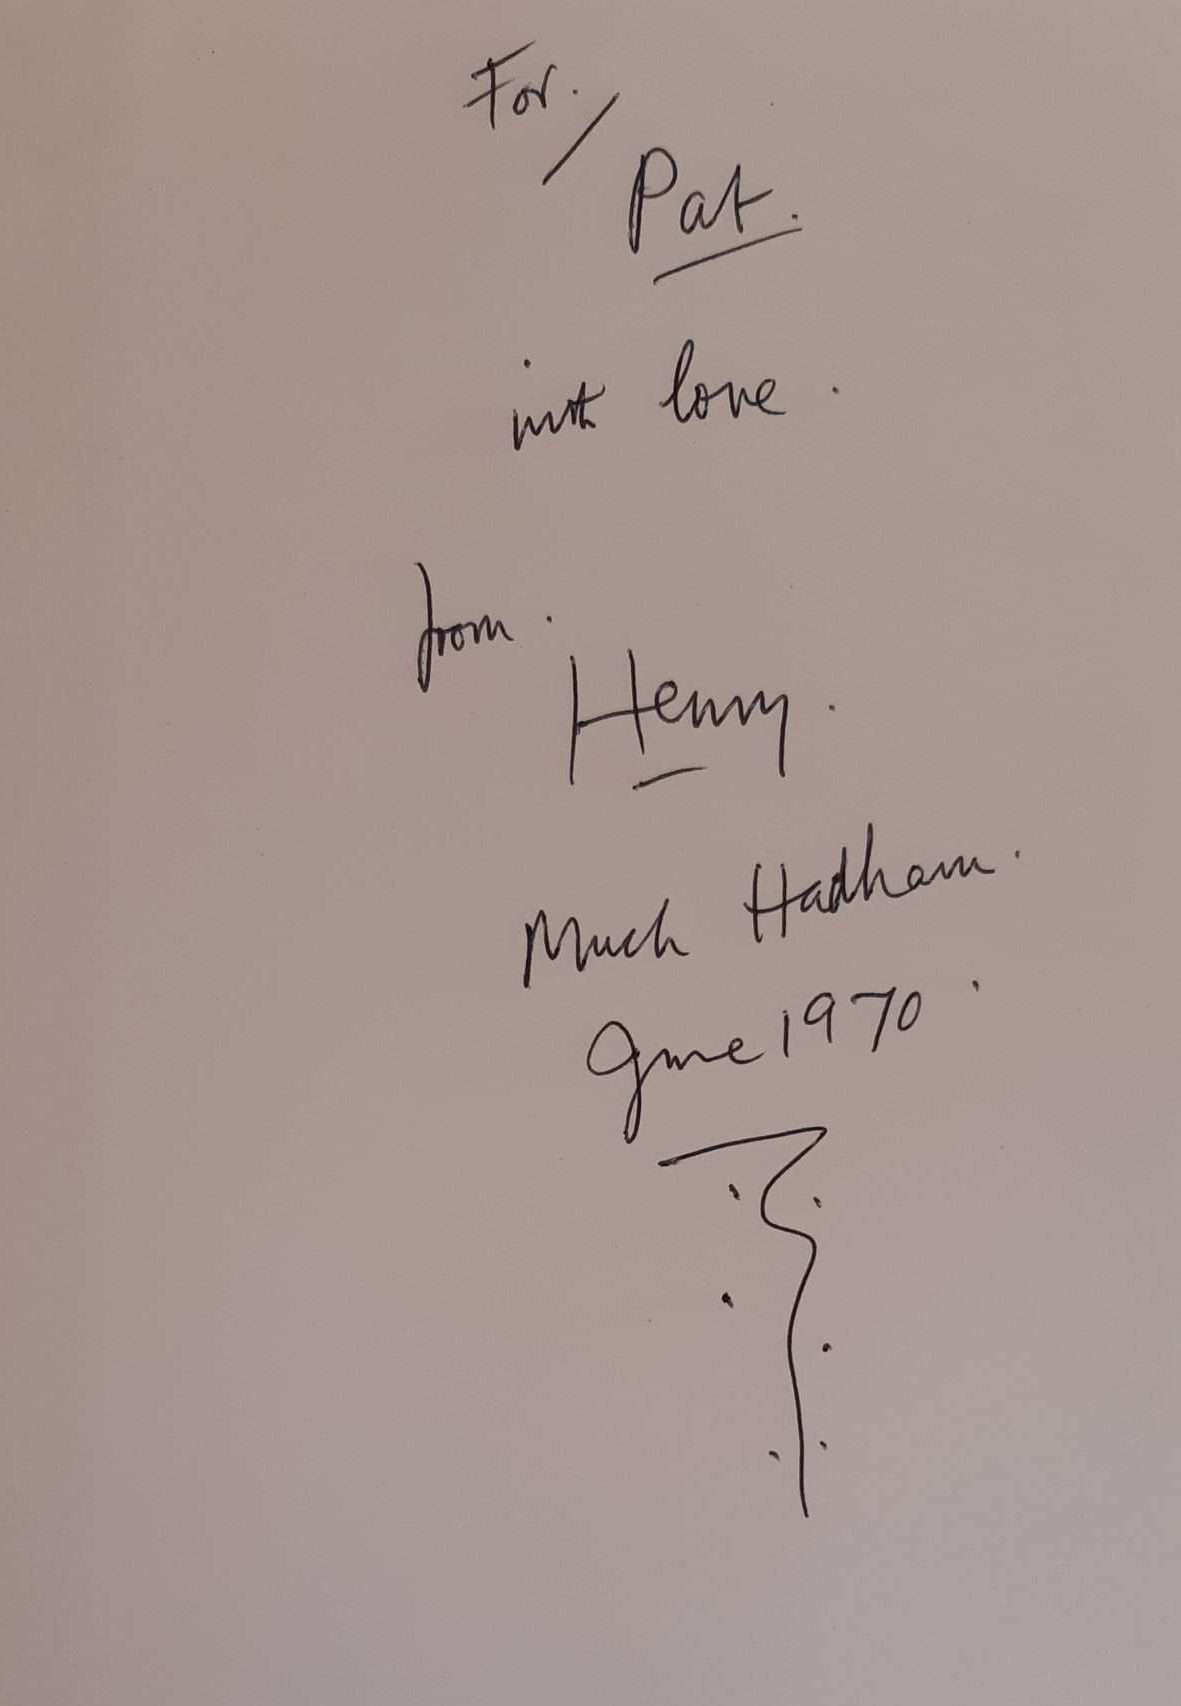 For.
Pat.
with love.
from.
Henry.
Much Hadham.
June 1970